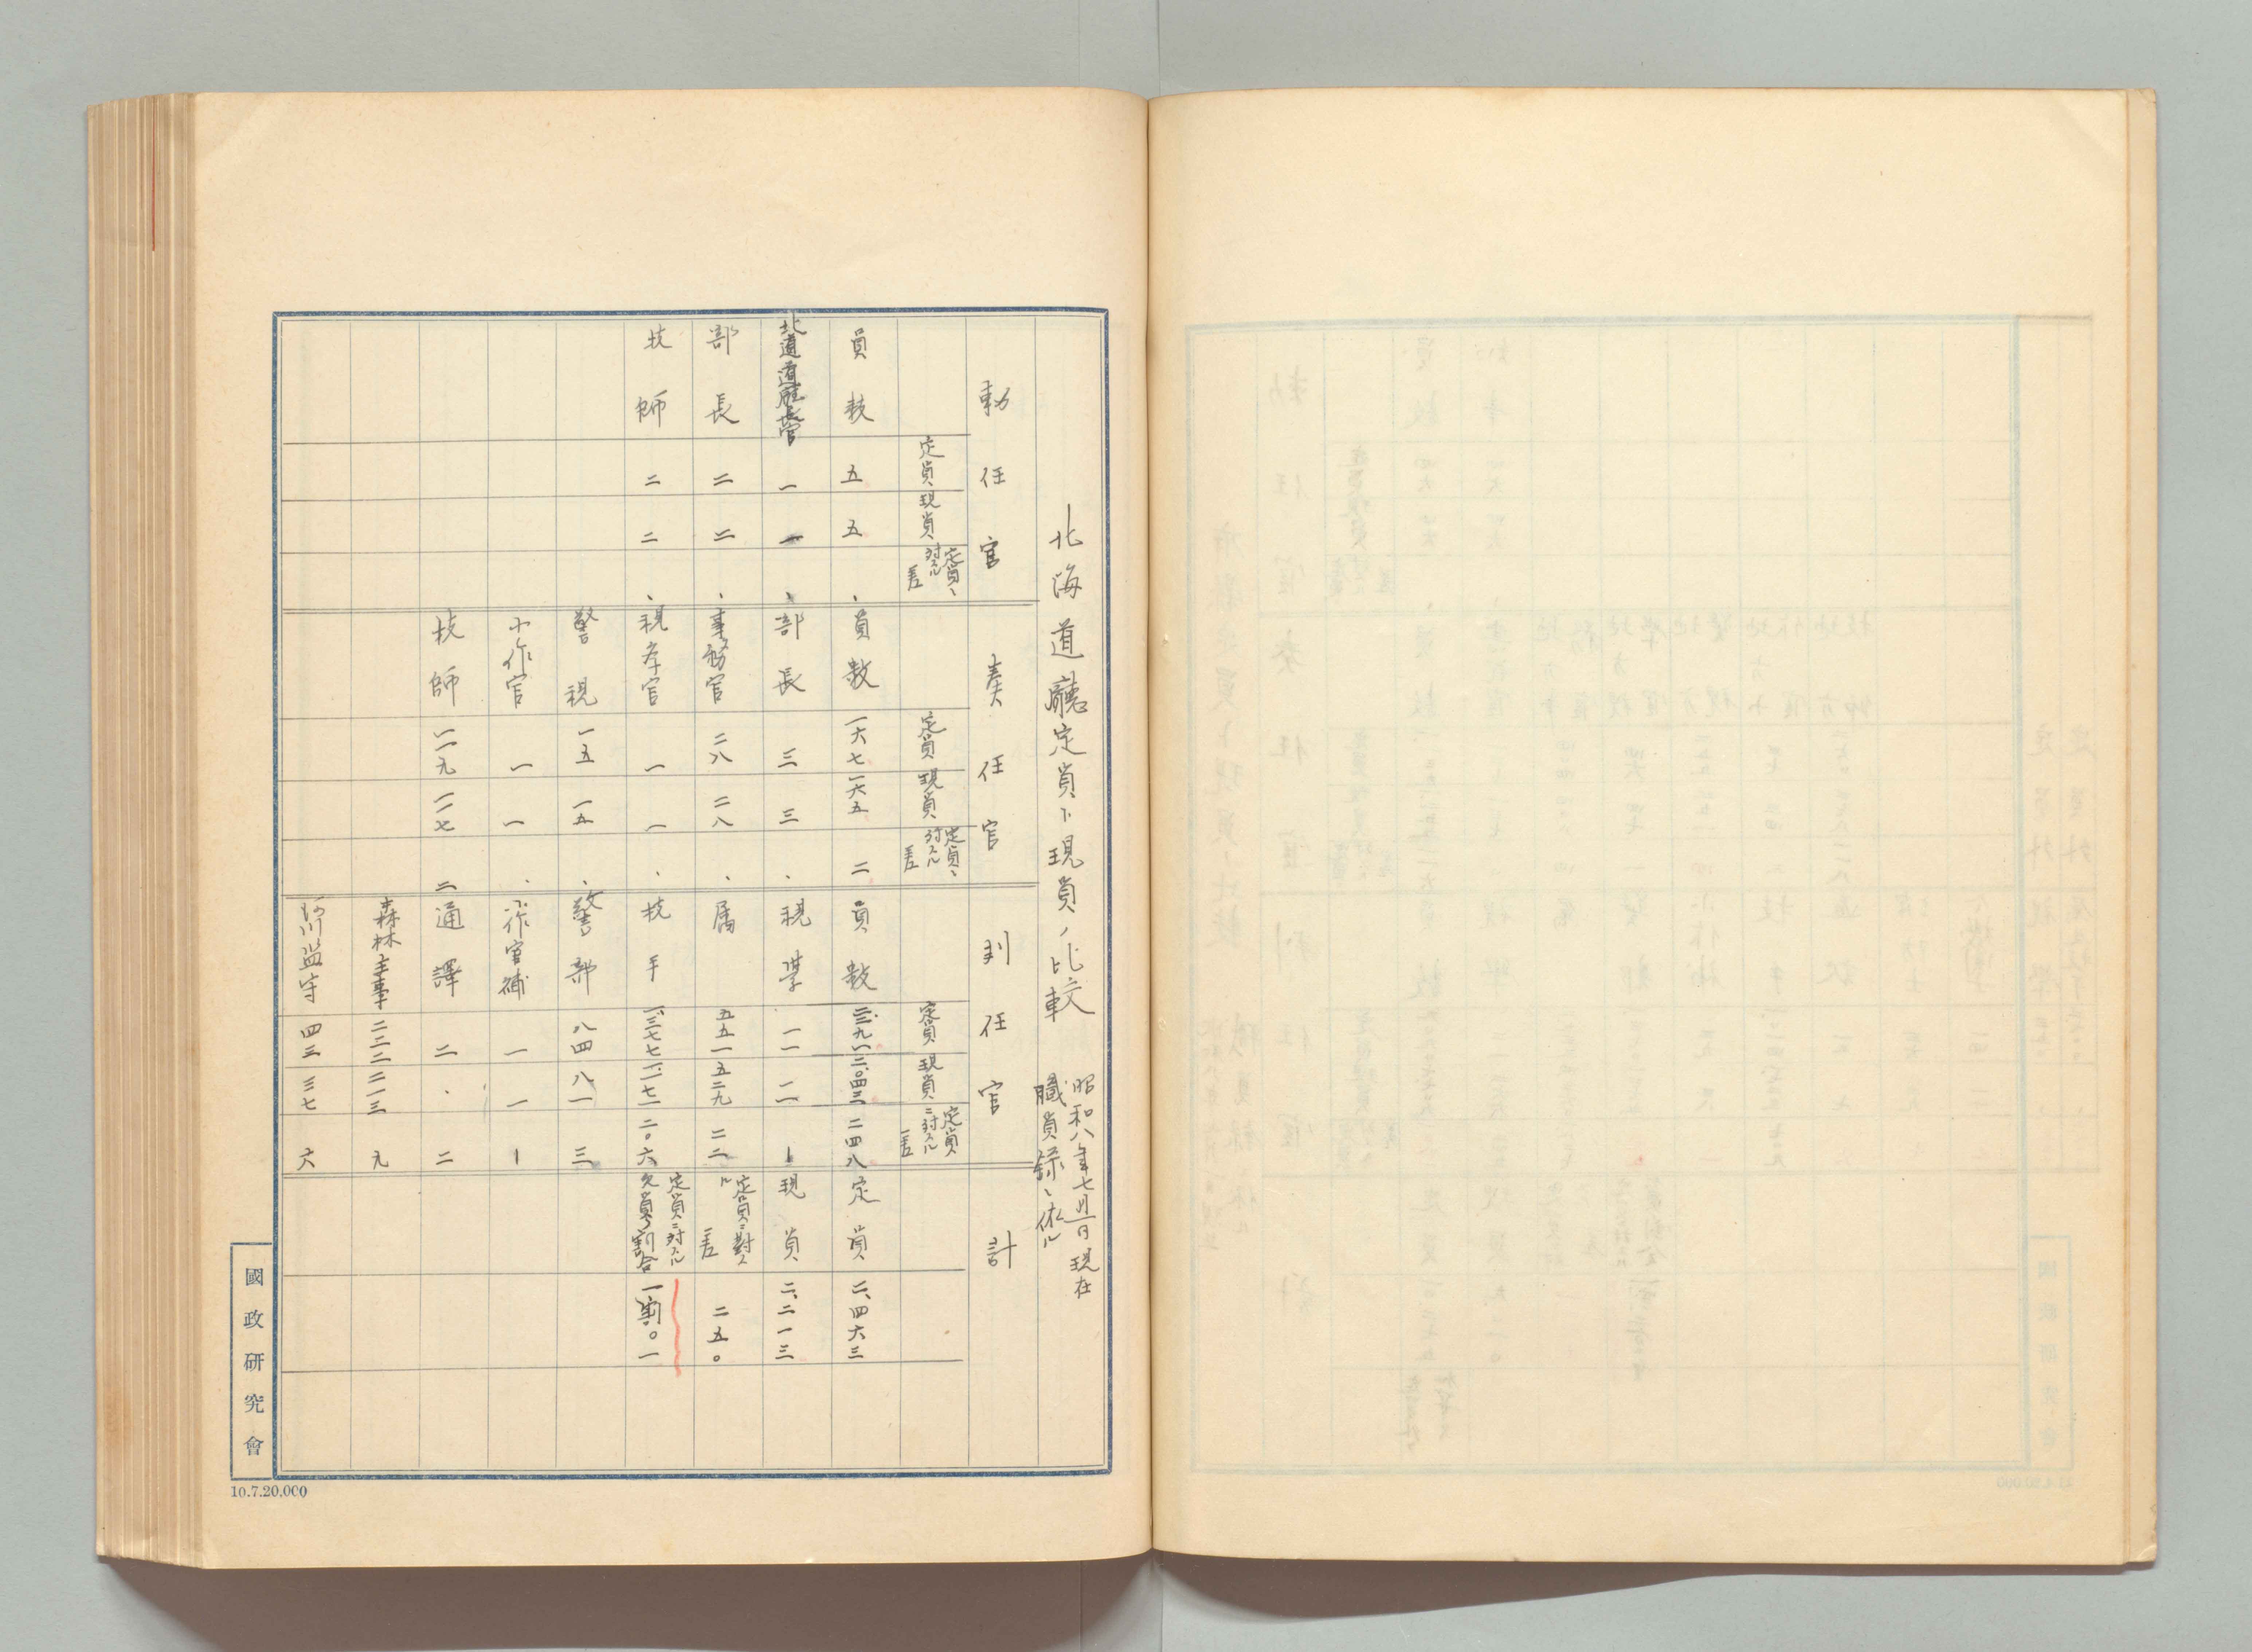 北海道廳定員ト現員ノ比較
昭和八年七月一日現在
職員録ニ依ル
勅任官
定員
現員
定員ニ
対スル
差
員数 五 五 、
北道道廳長官 一 一 、
部長 二 二 、
技師 二 二 、
奏任官
定員
現員
定員ニ
対スル
差
員数 一六七 一六五 二
部長 三 三 、
事務官 二八 二八 、
視学官 一 一 、
警視 一五 一五 、
小作官 一 一 、
技師 一一九 一一七 二
判任官
定員
現員
定員
ニ対スル
差
員数 二、二九一 二、〇四三 二四八
視学 一一 一一 ー
属 五五一 五二九 二二
技手 一、三七七 一、一七一 二〇六
警部 八四 八一 三
小作官補 一 一 ー
通譯 二 、 二
森林主事 二二二 二一三 九
河川監守 四三 三七 六
計
定員 二、四六三
現員 二、二一三
定員ニ對スル
差 二五〇
定員ニ対スル
欠員ノ割合 一割〇一
國政研究會
10.7.20,000